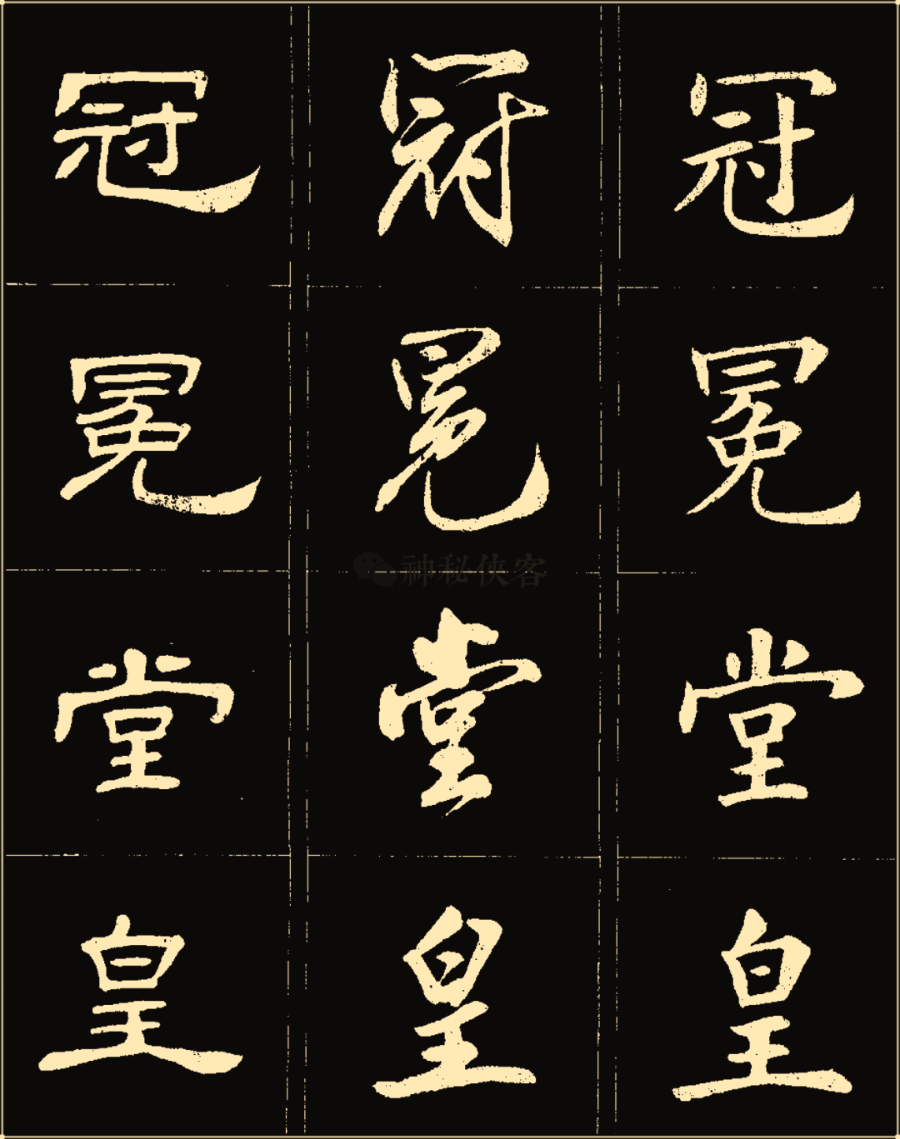 冠 冠 冠
冕 冕 冕
堂 堂 堂
皇 皇 皇
神秘侠客